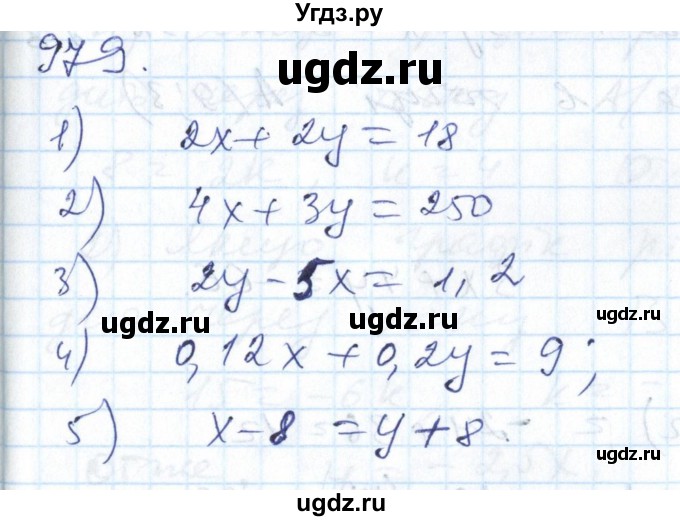 Угдз.ру
979.
ugdz.ru
1) 2x + 2y = 18
2) 4x + 3y = 250
ugdz.ru
3) 2y - 5x = 1,2
ugdz.ru
ugdz.ru
4) 0,12x + 0,2y = 9;
5) x - 8 = y + 8.
ugdz.ru
ugdz.ru
ugdz.ru